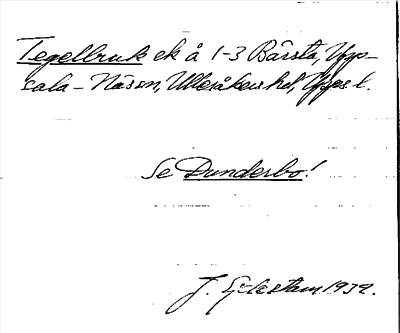 Tegelbruk ek å 1-3 Bärsta, Upp-
sala-Näs sn, Ulleråkers hd, Upps. l.
Se Dunderbo!
J. Edestam 1932.